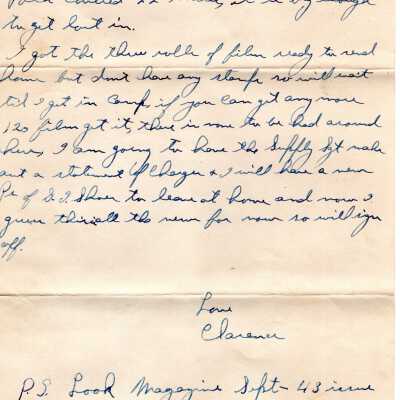 Park covered 22 miles, it is big enough
to get lost in.
I got the three rolls of film ready to send
home but don't have any stamps so will wait
til I get in camp, if you can get any more
120 film get it, there is none to be had around
here, I am going to have the Supply Sgt make
out a statement of Charges & I will have a new
Pr of G.I. Shoes to leave at home and now I
guess this is all the news for now so will sign
off.
Love
Clarence
P.S. Look Magazine Sept - 43 issue